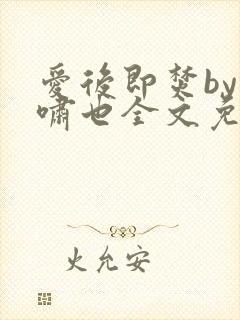 愛後即焚by
嘯也全文免
火允安